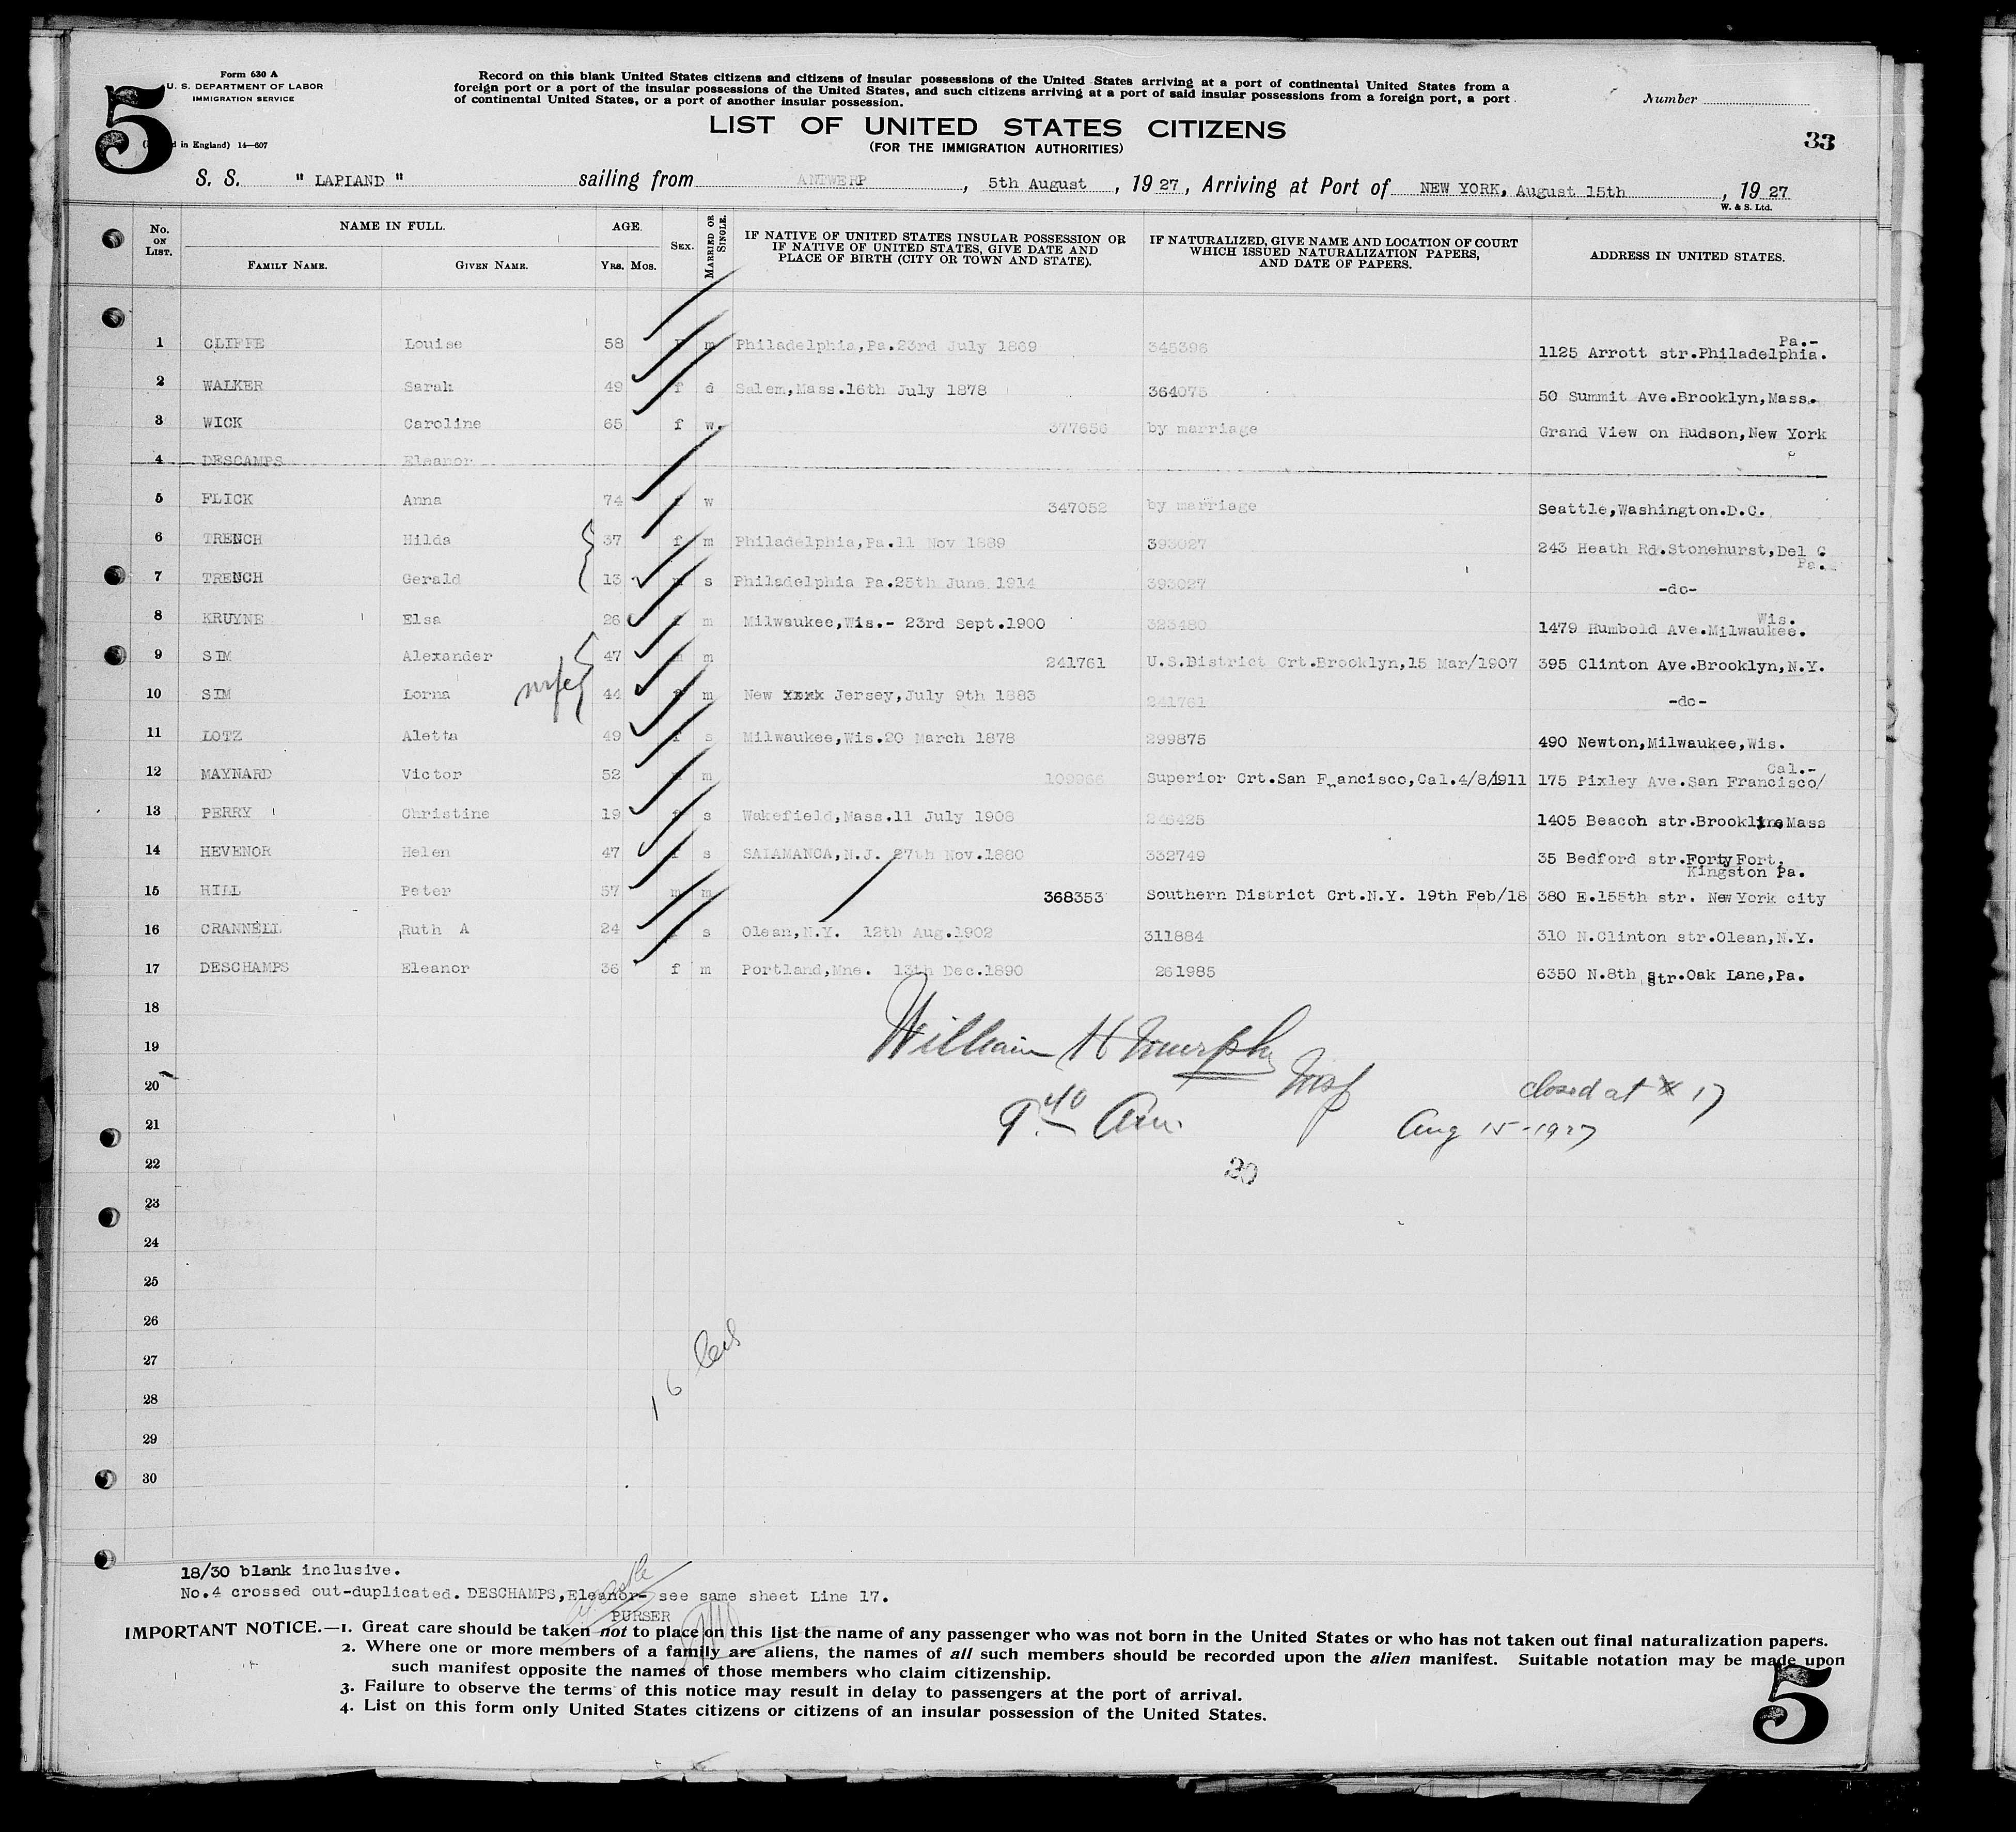 5
Form 630 A
U. S. DEPARTMENT OF LABOR
IMMIGRATION SERVICE
d in England) 14—607
Record on this blank United States citizens and citizens of insular possessions of the United States arriving at a port of continental United States from a
foreign port or a port of the insular possessions of the United States, and such citizens arriving at a port of said insular possessions from a foreign port, a port
of continental United States, or a port of another insular possession.
Number
LIST OF UNITED STATES CITIZENS
(FOR THE IMMIGRATION AUTHORITIES)
33
S. S. " LAPLAND " sailing from ANTWERP, 5th August, 19 27, Arriving at Port of NEW YORK, August 15th, 19 27
W. & S. Ltd.
No. ON LIST. NAME IN FULL. FAMILY NAME. GIVEN NAME. AGE. YRS. MOS. SEX. MARRIED OR SINGLE. IF NATIVE OF UNITED STATES INSULAR POSSESSION OR IF NATIVE OF UNITED STATES, GIVE DATE AND PLACE OF BIRTH (CITY OR TOWN AND STATE). IF NATURALIZED, GIVE NAME AND LOCATION OF COURT WHICH ISSUED NATURALIZATION PAPERS, AND DATE OF PAPERS. ADDRESS IN UNITED STATES.
1 CLIFFE Louise 58 m Philadelphia,Pa.23rd July 1869 345396 1125 Arrott str.Philadelphia. Pa.-
2 WALKER Sarah 49 f d Salem,Mass.16th July 1878 364075 50 Summit Ave.Brooklyn,Mass.
3 WICK Caroline 65 f w. 377656 by marriage Grand View on Hudson,New York
4 DESCAMPS Eleanor
5 FLICK Anna 74 w 347052 by marriage Seattle,Washington.D.C.
6 TRENCH Hilda 37 f m Philadelphia,Pa.11 Nov 1889 393027 243 Heath Rd.Stonehurst,Del C
Pa.
7 TRENCH Gerald 13 s Philadelphia Pa.25th June 1914 393027 -do-
8 KRUYNE Elsa 26 m Milwaukee,Wis.- 23rd Sept.1900 323480 1479 Humbold Ave.Milwaukee. Wis.
9 SIM Alexander 47 m 241761 U.S.District Crt.Brooklyn,15 Mar/1907 395 Clinton Ave.Brooklyn,N.Y.
wife
10 SIM Lorna 44 f m New xxxx Jersey,July 9th 1883 241761 -do-
11 LOTZ Aletta 49 f s Milwaukee,Wis.20 March 1878 299875 490 Newton,Milwaukee,Wis.
12 MAYNARD Victor 52 m 109866 Superior Crt.San Francisco,Cal.4/8/1911 175 Pixley Ave.San Francisco/ Cal.-
13 PERRY Christine 19 f s Wakefield,Mass.11 July 1908 246425 1405 Beacon str.Brookline,Mass
14 HEVENOR Helen 47 f s SALAMANCA,N.J. 27th Nov.1880 332749 35 Bedford str.Forty Fort,
Kingston Pa.
15 HILL Peter 57 m m 368353 Southern District Crt.N.Y. 19th Feb/18 380 E.155th str. New York city
16 CRANNELL Ruth A 24 s Olean,N.Y. 12th Aug.1902 311884 310 N.Clinton str.Olean,N.Y.
17 DESCHAMPS Eleanor 36 f m Portland,Mne. 13th Dec.1890 261985 6350 N.8th str.Oak Lane,Pa.
18
19 William H Murphy
Insp
20 closed at # 17
21 9.40 Am. Aug 15-1927
22
23
24
25
26
27
28
29
30
16
18/30 blank inclusive.
No.4 crossed out-duplicated. DESCHAMPS,Eleanor- see same sheet Line 17.
PURSER
IMPORTANT NOTICE.—1. Great care should be taken not to place on this list the name of any passenger who was not born in the United States or who has not taken out final naturalization papers.
2. Where one or more members of a family are aliens, the names of all such members should be recorded upon the alien manifest. Suitable notation may be made upon
such manifest opposite the names of those members who claim citizenship.
3. Failure to observe the terms of this notice may result in delay to passengers at the port of arrival.
4. List on this form only United States citizens or citizens of an insular possession of the United States.
5